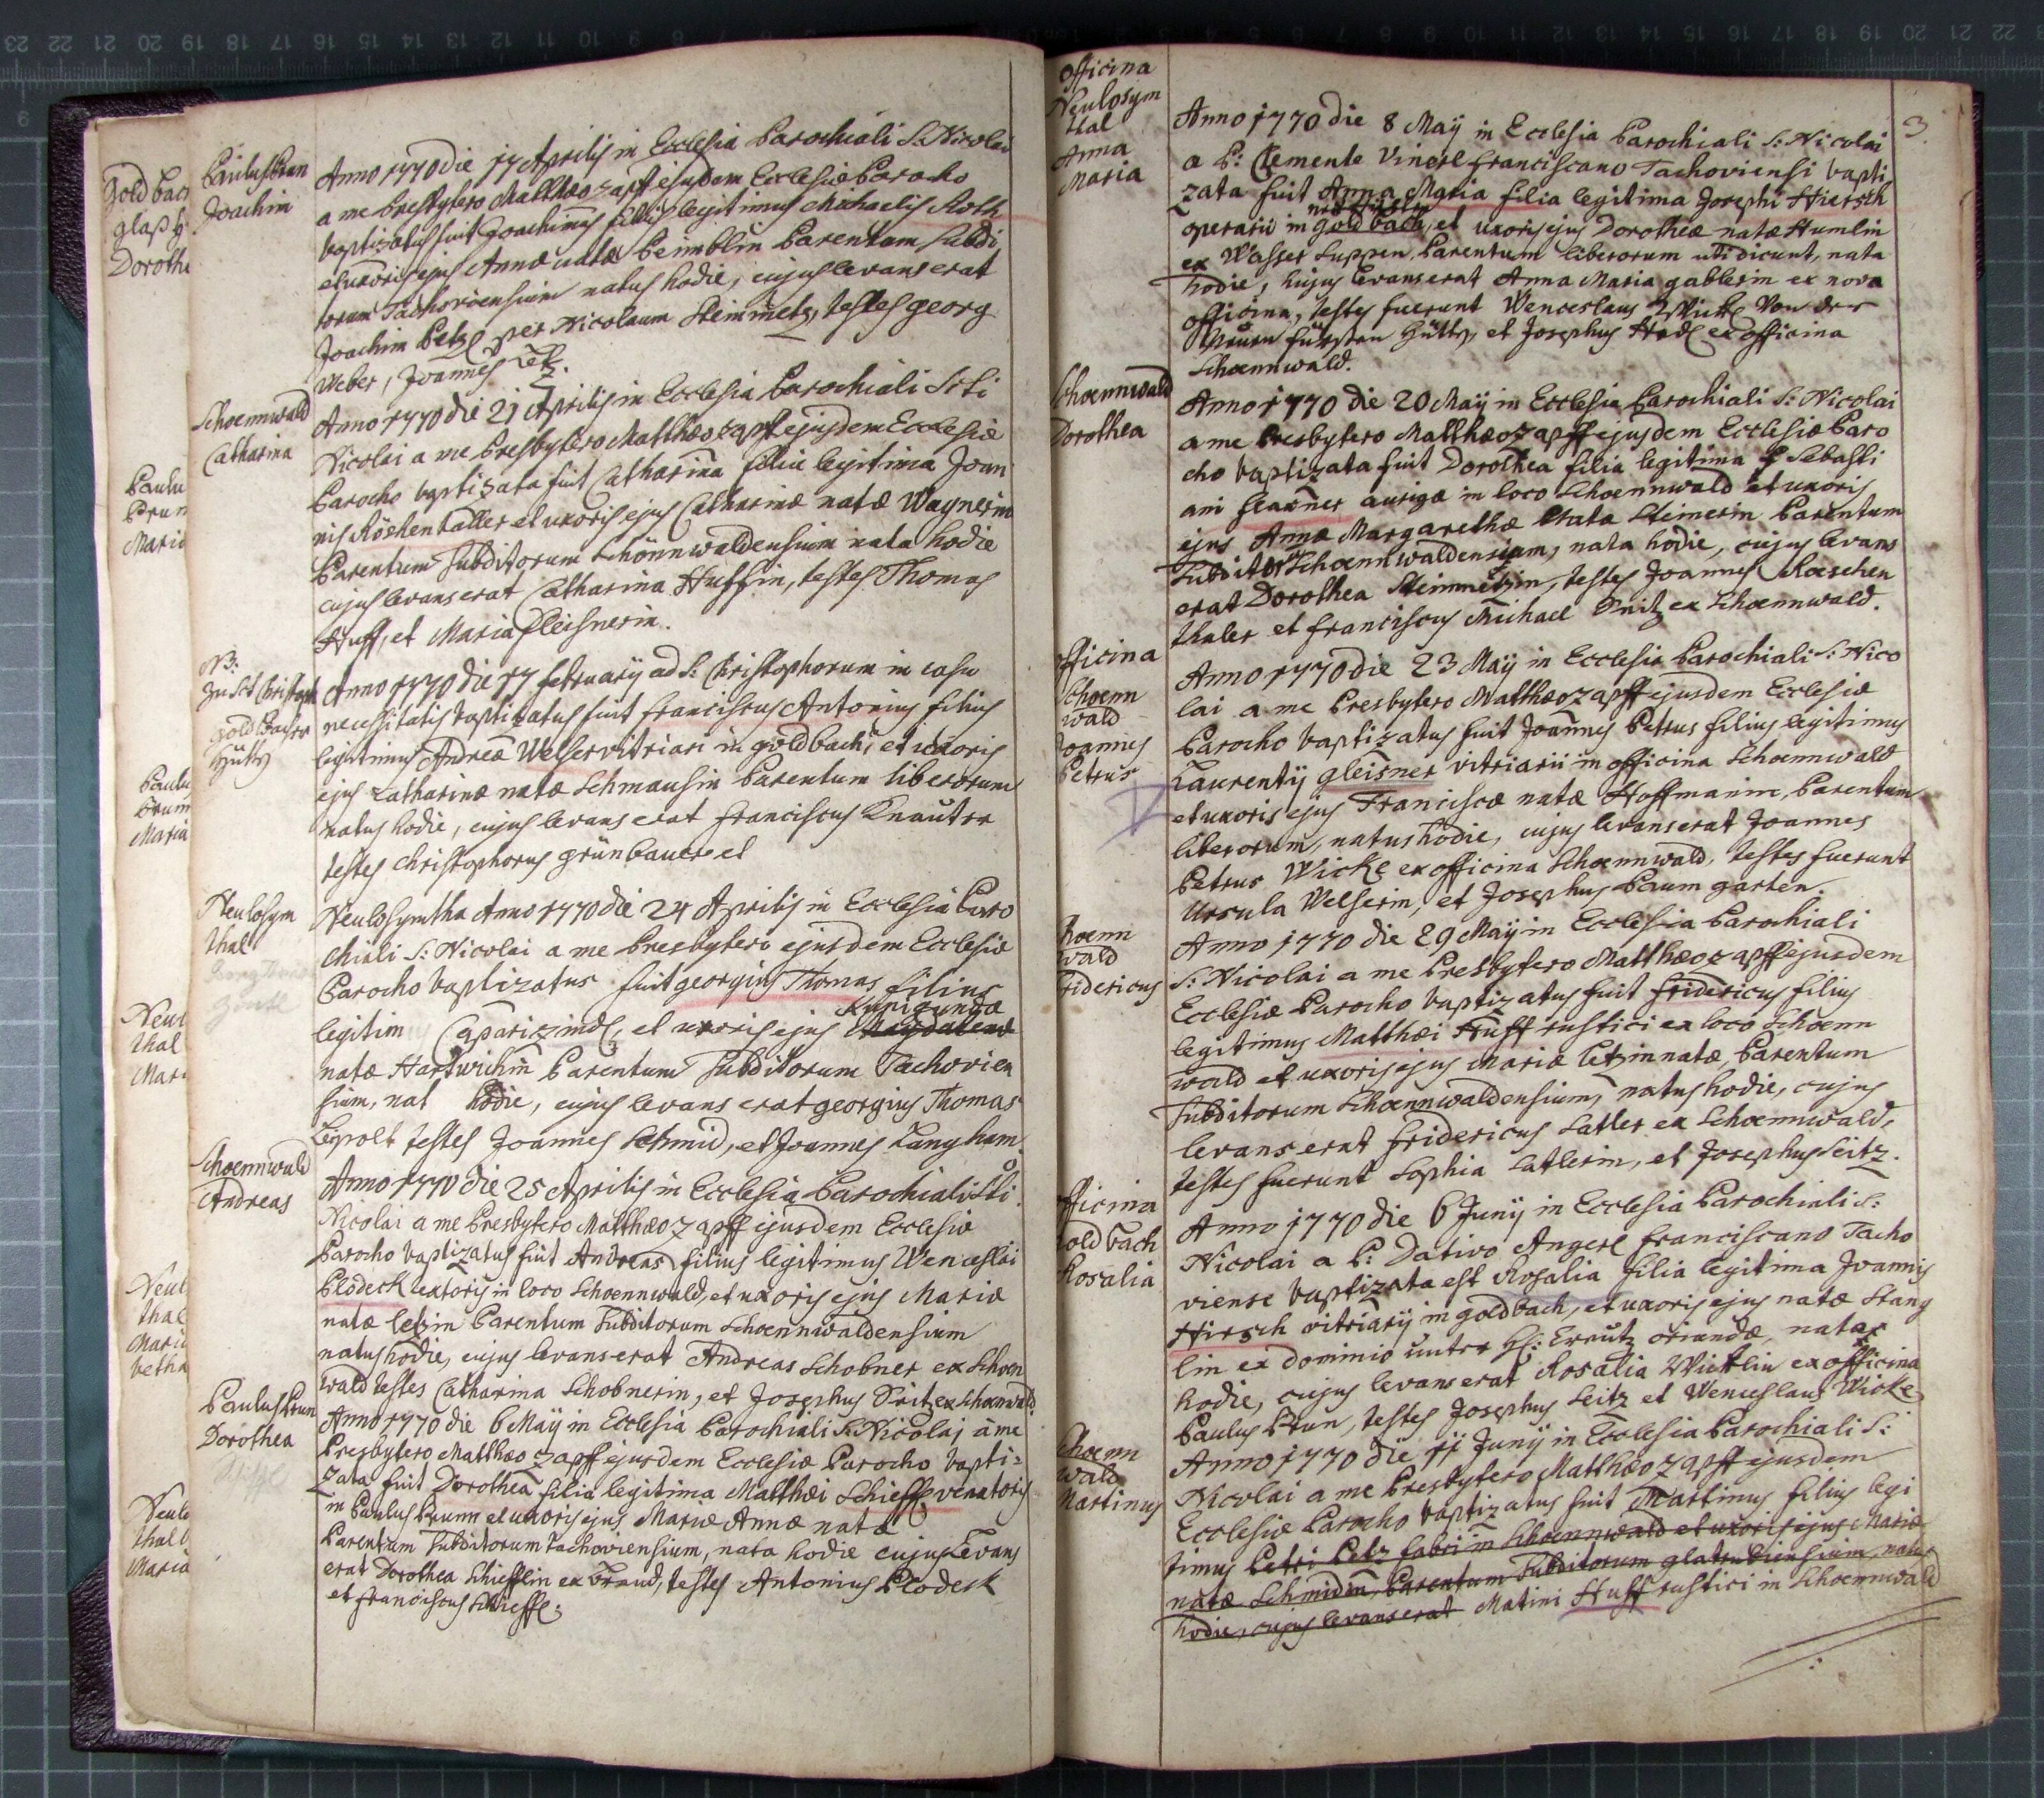 Paulusbrun
Joachim
Anno 1770 die 17 Aprilis in Ecclesia Parochiali S. Nicolai
a me Presbytero Matthaeo Zapff ejusdem Ecclesiae Parocho
baptizatus fuit Joachimus filius legitimus Michaelis Roth
et uxoris ejus Annae natae Beimblin Parentum Subdi
torum Tachoviensium natus hodie, cujus levans erat
Joachim Betzl per Nicolaum Steinmetz, testes georg
Weber, Joannes
Schoennwald
Catharina
Anno 1770 die 21 Aprilis in Ecclesia Parochiali Scti
Nicolai a me Presbytero Matthaeo Zapff ejusdem Ecclesiae
Parocho baptizata fuit Catharina filia legitima Joan
nis Röshentaller et uxoris ejus Catharinae natae Wagnerin
Parentum Subditorum Schönnwaldensium nata hodie
cujus levans erat Catharina Huffin, testes Thomas
Huff, et Maria Pleisnerin.
NB:
Zu Sct Christoph
goldbacher
Hütty
Anno 1770 die 17 february ad S. Christophorum in casu
necessitatis baptizatus fuit franciscus Antonius filius
legitimus Andreae Welser vitriari in goldbach, et uxoris
ejus Catharinae natae Schmausin Parentum liberorum
natus hodie, cujus levans erat franciscus Knauter
testes christophorus grünbauer et
Neulosym
thal
Neulosymtha Anno 1770 die 24 Aprilis in Ecclesia Paro
chiali S: Nicolai a me Presbytero ejusdem Ecclesiae
Parocho baptizatus fuit georgius Thomas filius
Kunigunda
legitim Caspari zindl, et uxoris ejus Magdalenae
natae Hartwichin Parentum Subditorum Tachovien
sium, nat hodie, cujus levans erat georgius Thomas
Lipolt testes Joannes Schmid, et Joannes Langham
Schoennwald
Andreas
Anno 1770 die 25 Aprilis in Ecclesia Parochiali Scti
Nicolai a me Presbytero Matthaeo Zapff ejusdem Ecclesiae
Parocho baptizatus fuit Andreas filius legitimus Wenceslai
Plodeck textoris in loco Schoennwald, et uxoris ejus Mariae
natae letzin Parentum Subditorum Schoennwaldensium
natus hodie, cujus levans erat Andreas Schobner ex Schoen
wald testes Catharina Schobnerin, et Josephus Snitz ex Schoenwald
Paulusbrun
Dorothea
Anno 1770 die 6 Maÿ in Ecclesia Parochiali S: Nicolai à me
Presbytero Matthaeo Zapff ejusdem Ecclesiae Parocho bapti=
zata fuit Dorothea filia legitima Matthaei Schieffl venatoris
in Paulus Brunn et uxoris ejus Mariae Annae natae
Parentum Subditorum Tachoviensium, nata hodie cujus Levans
erat Dorothea Schiefflin ex Brand, testes Antonius Plodeck
et franciscus Schieffl.
3
officina
Neulosym
thal
Anna
Maria
Anno 1770 die 8 Maÿ in Ecclesia Parochiali S: Nicolai
a P: Clemente Vingerl franciscano Tachoviensi bapti
zata fuit Anna Maria filia legitima Josephi Hiersch
operarii in goldbach, et uxoris ejus Dorotheae natae Humlin
ex Wasser Suppen, Parentum liberorum uti dicunt, nata
hodie, hujus levans erat Anna Maria gablerin ex nova
officina, testes fuerunt Wenceslaus Wickl von der
Neuen fürsten Hütty, et Josephus Hodl ex officina
Schoennwald.
Schoennwald
Dorothea
Anno 1770 die 20 Maÿ in Ecclesia Parochiali S: Nicolai
a me Presbytero Matthaeo Zapff ejusdem Ecclesiae Paro
cho baptizata fuit Dorothea filia legitima Sebasti
ani flaxner aurigae in loco Schoennwald et uxoris
ejus Annae Margarethae Nata Steinerin Parentum
Subditor Schoennwaldensium, nata hodie, cujus levans
erat Dorothea Steinmetzin, testes Joannes Roeschen
thaler et franciscus Michael Snitz ex Schoennwald.
fficina
Schoenn
wald
Joannes
Petrus
Anno 1770 die 23 Maÿ in Ecclesia Parochiali S: Nico
lai a me Presbytero Matthaeo Zapff ejusdem Ecclesiae
Parocho baptizatus fuit Joannes Petrus filius legitimus
Laurentÿ gleisner vitriarii in officina Schoennwald
et uxoris ejus Franciscae natae Hoffmanin, Parentum
liberorum, natus hodie, cujus levans erat Joannes
Petrus Wickl ex officina Schoennwald, testes fuerunt
Ursula Welserin, et Josephus Baumgarten.
hoenn
wald
fridericus
Anno 1770 die 29 Maÿ in Ecclesia Parochiali
S: Nicolai a me Presbytero Matthaeo Zapff ejusdem
Ecclesiae Parocho baptizatus fuit fridericus filius
legitimus Matthaei Huff rustici ex loco Schoenn
wald et uxoris ejus Mariae Letzin natae, Parentum
Subditorum Schoennwaldensium, natus hodie, cujus
levans erat fridericus Satler ex Schoennwald,
testes fuerunt Sophia Satlerin, et Josephus Seitz.
fficina
old bach
Rosalia
Anno 1770 die 6 Junÿ in Ecclesia Parochiali S:
Nicolai a P: Dativo Angerl franciscano Tacho
viense baptizata est Rosalia filia legitima Joannis
Hirsch vitriarÿ in goldbach, et uxoris ejus natae Stang
lin ex dominio unter Hl: Creutz oriundae, nata
hodie, cujus levans erat Rosalia Wicklin ex officina
Paulus Brun, testes Josephus Seitz et Wenceslaus Wickl
choenn
wald
Martinus
Anno 1770 die 11 Junÿ in Ecclesia Parochiali S:
Nicolai a me Presbytero Matthaeo Zapff ejusdem
Ecclesiae Parocho baptizatus fuit Martinus filius legi
timus Petri Petz fabri in Schoennwald et uxoris ejus Mariae
natae Schmidin, Parentum Subditorum glatrubiensium, natus
hodie, cujus levans erat Matini Huff rustici in Schoennwald